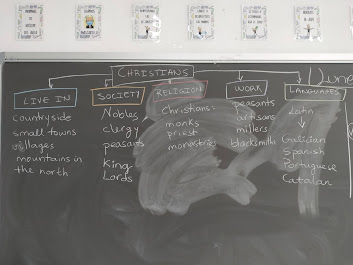 CHRISTIANS
LIVE IN
countryside
small towns
villages
mountains in
the north
SOCIETY
Nobles
clergy
peasants
King
Lords
RELIGION
Christians:
monks
priest
monastries
WORK
peasants
artisans
millers
blacksmiths
LANGUAGES
Latin
Galician
Spanish
Portuguese
Catalan